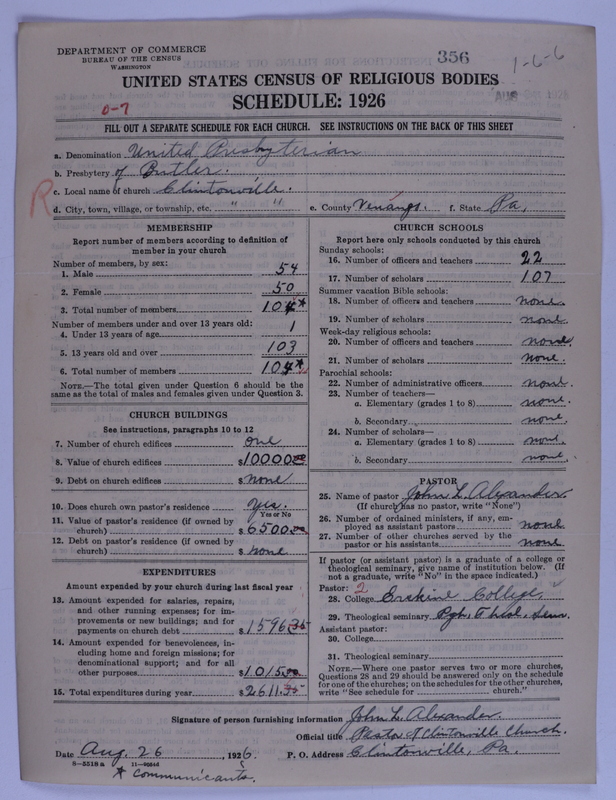 DEPARTMENT OF COMMERCE
BUREAU OF THE CENSUS
WASHINGTON
356
1-6-6
UNITED STATES CENSUS OF RELIGIOUS BODIES
AUG 1926
SCHEDULE: 1926
0-7
FILL OUT A SEPARATE SCHEDULE FOR EACH CHURCH. SEE INSTRUCTIONS ON THE BACK OF THIS SHEET
a. Denomination United Presbyterian
b. Presbytery of Butler.
R
c. Local name of church Clintonville.
d. City, town, village, or township, etc. " " e. County Venango. f. State Pa.
MEMBERSHIP
Report number of members according to definition of member in your church
Number of members, by sex:
1. Male 54
2. Female 50
3. Total number of members 104*
Number of members under and over 13 years old:
4. Under 13 years of age 1
5. 13 years old and over 103
6. Total number of members 104*
NOTE.—The total given under Question 6 should be
same as the total of males and females given under Question 3.
CHURCH BUILDINGS
See instructions, paragraphs 10 to 12
7. Number of church edifices one
8. Value of church edifices $10000.00
9. Debt on church edifices $ none
10. Does church own pastor's residence yes.
Yes or No
11. Value of pastor's residence (if owned by
church) $6500.00
12. Debt on pastor's residence (if owned by
church) $ none
EXPENDITURES
Amount expended by your church during last fiscal year
13. Amount expended for salaries, repairs,
and other running expenses; for im-
provements or new buildings; and for
payments on church debt $1596.35
14. Amount expended for benevolences, in-
cluding home and foreign missions; for
denominational support; and for all
other purposes $1015.00
15. Total expenditures during year $2611.35
CHURCH SCHOOLS
Report here only schools conducted by this church
Sunday schools:
16. Number of officers and teachers 22
17. Number of scholars 107
Summer vacation Bible schools:
18. Number of officers and teachers none.
19. Number of scholars none.
Week-day religious schools:
20. Number of officers and teachers none.
21. Number of scholars none.
Parochial schools:
22. Number of administrative officers none.
23. Number of teachers—
a. Elementary (grades 1 to 8) none.
b. Secondary none.
24. Number of scholars—
a. Elementary (grades 1 to 8) none.
b. Secondary none.
PASTOR
25. Name of pastor John L. Alexander
(If church has no pastor, write "None")
26. Number of ordained ministers, if any, em-
ployed as assistant pastors none
27. Number of other churches served by the
pastor or his assistants none.
If pastor (or assistant pastor) is a graduate of a college or
theological seminary, give name of institution below. (If
not a graduate, write "No" in the space indicated.)
Pastor: 2
28. College Erskine College.
29. Theological seminary Pgh. Theol. Sem.
Assistant pastor:
30. College
31. Theological seminary
NOTE.—Where one pastor serves two or more churches,
Questions 28 and 29 should be answered only on the schedule
for one of the churches; on the schedules for the other churches,
write "See schedule for church."
Signature of person furnishing information John L. Alexander.
Official title Pastor of Clintonville Church.
Date Aug. 26, 1926. P. O. Address Clintonville, Pa.
8-5518 a
* communicants.